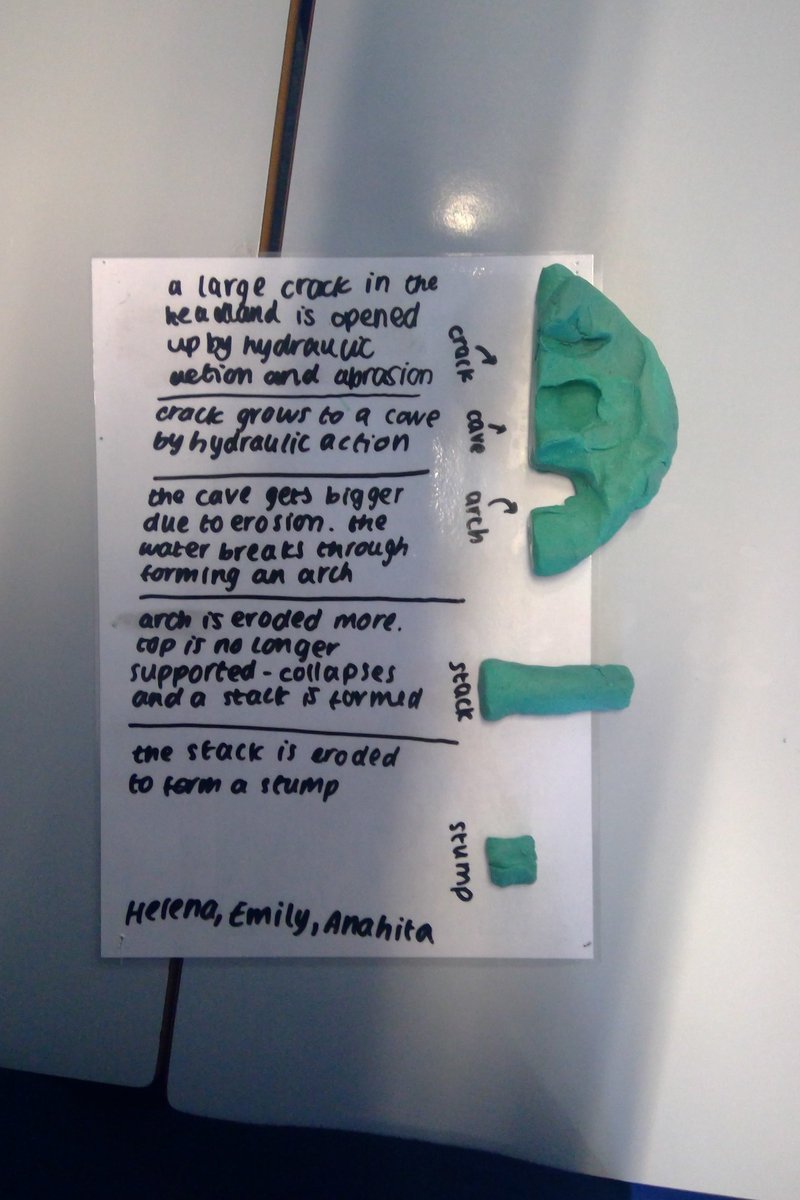 a large crack in the
headland is opened
up by hydraulic
action and abrasion
crack grows to a cave
by hydraulic action
the cave gets bigger
due to erosion. the
water breaks through
forming an arch
arch is eroded more.
top is no longer
supported - collapses
and a stack is formed
the stack is eroded
to form a stump
Helena, Emily, Anahita
crack
cave
arch
stack
stump